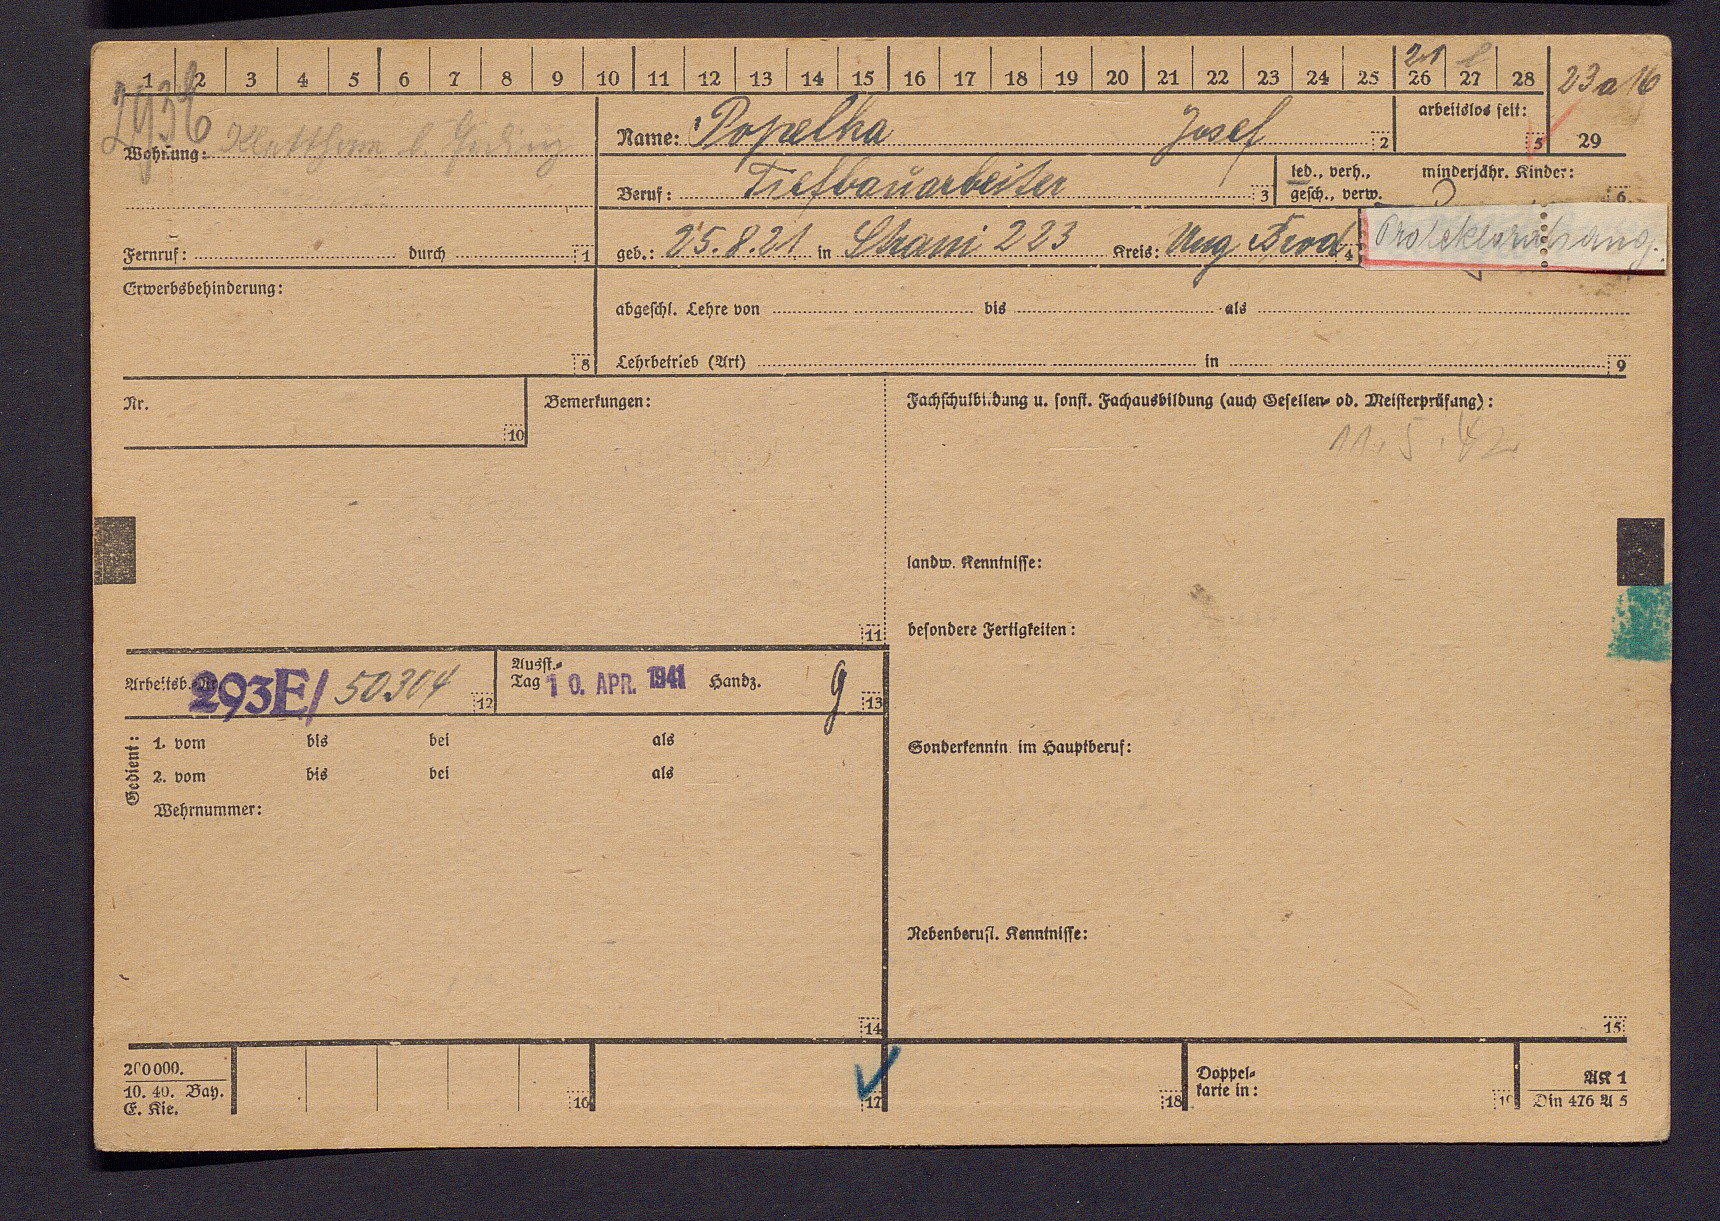 1 2 3 4 5 6 7 8 9 10 11 12 13 14 15 16 17 18 19 20 21 22 23 24 25 26 27 28
21
23 a 16
29
293E
Wohnung:
Name: Popelka Josef 2
arbeitslos seit: 5
Beruf: Tiefbauarbeiter 3
led., verh., gesch., verw.
minderjähr. Kinder: 6
Fernruf: durch 1
geb.: 25.8.21 in Strani 223 Kreis: Ung Brod 4
Protektoratsang.
Erwerbsbehinderung: 8
abgeschl. Lehre von bis als
Lehrbetrieb (Art) in 9
Nr. 10
Bemerkungen: 11
Fachschulbildung u. sonst. Fachausbildung (auch Gesellen- od. Meisterprüfung):
11.5.42
landw. Kenntnisse:
besondere Fertigkeiten:
Arbeitsb.-Nr. 293E/ 50304 12
Ausst.-
Tag 10. APR. 1941 Handz. g 13
Gedient:
1. vom bis bei als
2. vom bis bei als
Wehrnummer:
14
Sonderkenntn. im Hauptberuf:
Nebenberufl. Kenntnisse:
15
200000.
10. 40. Bay.
E. Kie.
16
17
18
Doppel-
karte in:
19
AK 1
Din 476 A 5